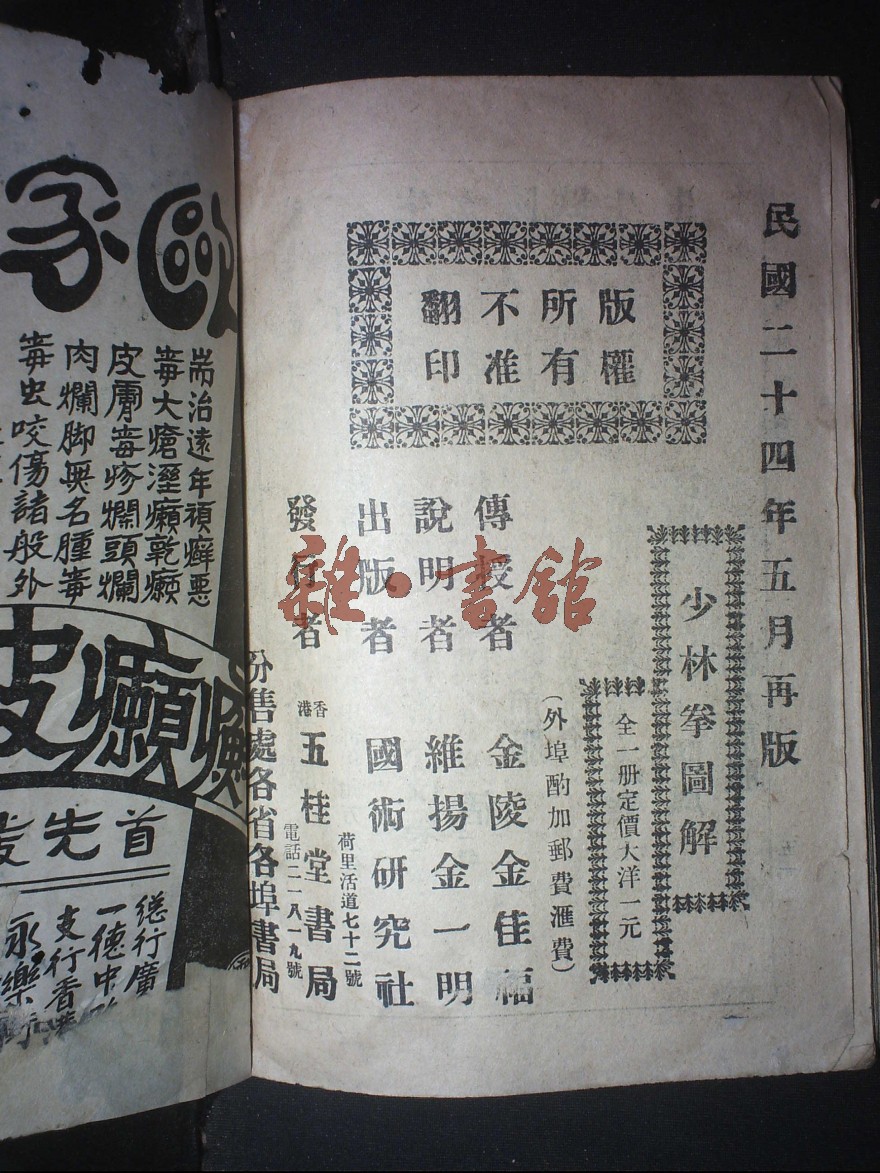 民國二十四年五月再版
少林拳圖解
全一册定價大洋一元
（外埠酌加郵費滙費）
版權
所有
不准
翻印
傳授者 金陵金佳福
說明者 維揚金一明
出版者 國術研究社
發行者 香港五桂堂書局
荷里活道七十二號
電話二一八一九號
分售處各省各埠書局
雜·書館
家
耑治遠年頑癬惡
毒大瘡溼癩乾癩
皮膚毒疹爛頭爛
肉爛脚無名腫毒
毒虫咬傷諸般外
癩皮
首先
總行廣
一德中
支行香港
永樂